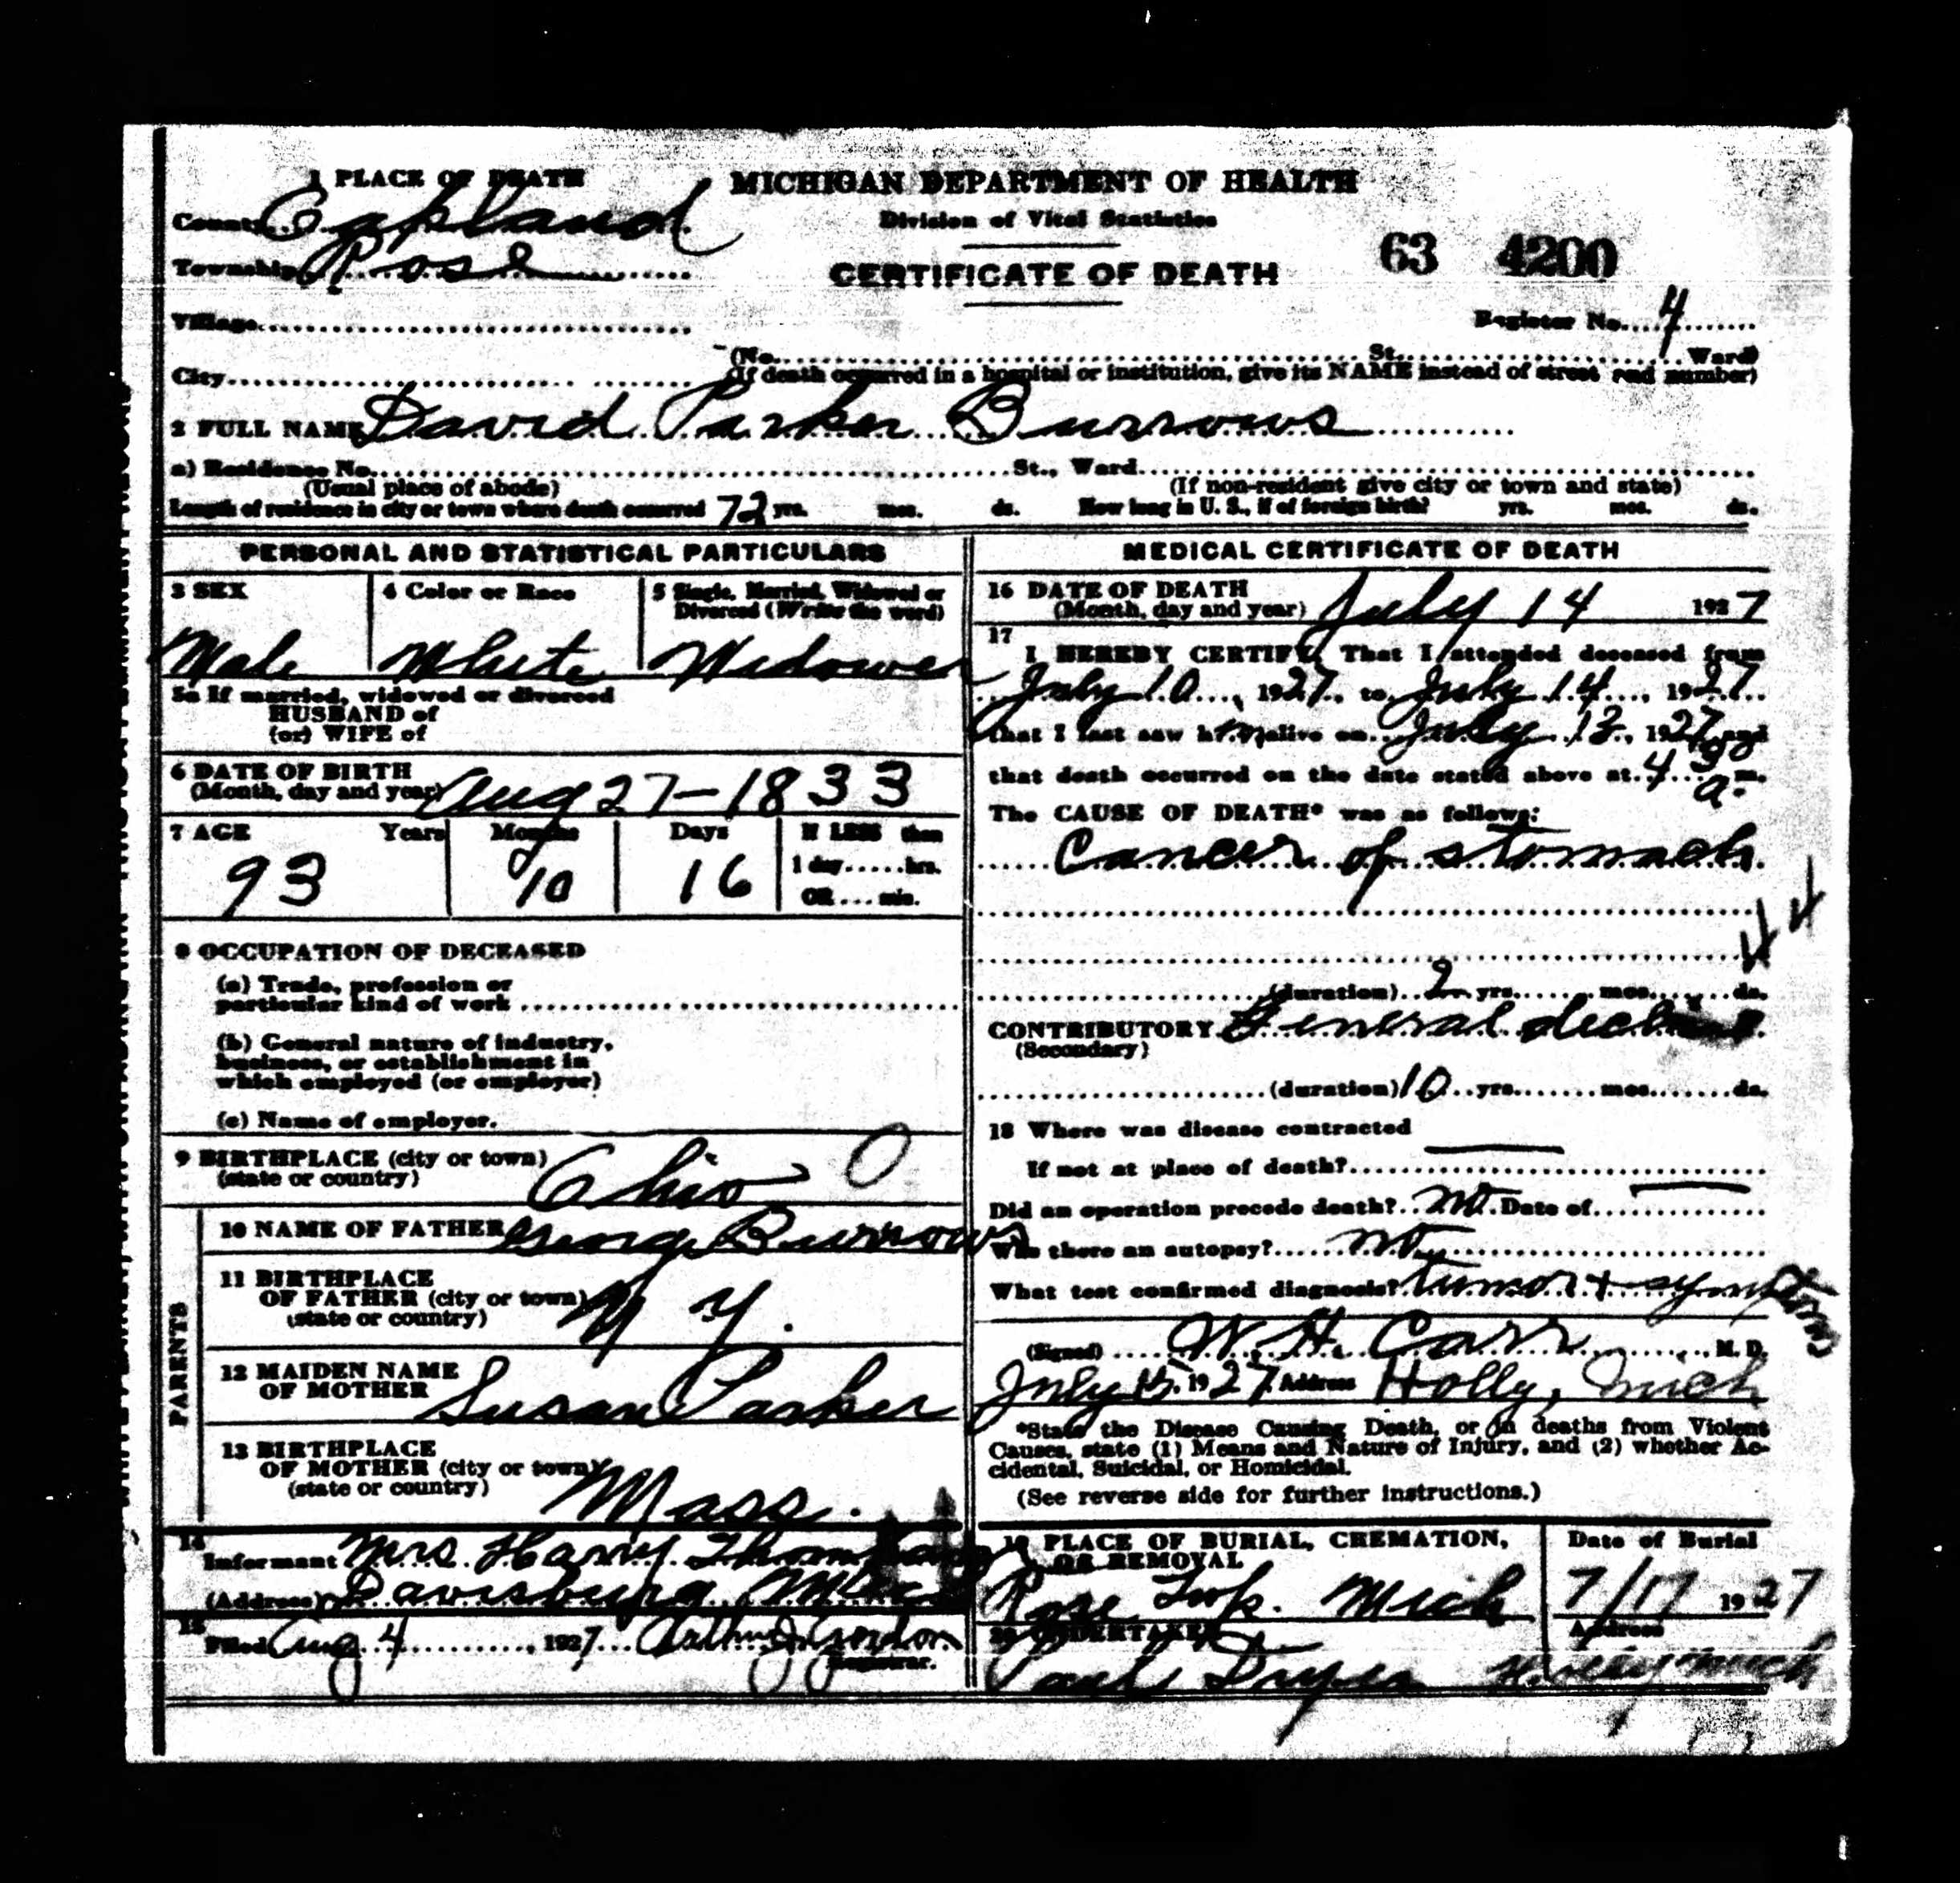 1 PLACE OF DEATH
MICHIGAN DEPARTMENT OF HEALTH
Division of Vital Statistics
County Oakland
Township Rose
CERTIFICATE OF DEATH
63 4200
Village
Register No. 4
(No. St. Ward)
City
(If death occurred in a hospital or institution, give its NAME instead of street and number)
2 FULL NAME David Parker Burrows
a) Residence No. St., Ward
(Usual place of abode) (If non-resident give city or town and state)
Length of residence in city or town where death occurred 72 yrs. mos. ds. How long in U. S., if of foreign birth? yrs. mos. ds.
PERSONAL AND STATISTICAL PARTICULARS
3 SEX
Male
4 Color or Race
White
5 Single, Married, Widowed or Divorced (Write the word)
Widower
5a If married, widowed or divorced
HUSBAND of
(or) WIFE of
6 DATE OF BIRTH
(Month, day and year) Aug 27-1833
7 AGE Years Months Days If LESS than
1 day......hrs.
93 10 16
OR....min.
8 OCCUPATION OF DECEASED
(a) Trade, profession or
particular kind of work
(b) General nature of industry,
business, or establishment in
which employed (or employer)
(c) Name of employer.
9 BIRTHPLACE (city or town)
(state or country) Ohio O
PARENTS
10 NAME OF FATHER George Burrows
11 BIRTHPLACE
OF FATHER (city or town)
(state or country) N Y.
12 MAIDEN NAME
OF MOTHER Susan Parker
13 BIRTHPLACE
OF MOTHER (city or town)
(state or country) Mass.
14
Informant Mrs. Harry
(Address) Davisburg, Mich
15
Filed Aug 4, 1927 Arthur J. Gordon
Registrar.
MEDICAL CERTIFICATE OF DEATH
16 DATE OF DEATH
(Month, day and year) July 14 1927
17
I HEREBY CERTIFY, That I attended deceased from
July 10, 1927, to July 14, 1927
that I last saw him alive on July 13, 1927 and
that death occurred on the date stated above at 4 a. m.
The CAUSE OF DEATH* was as follows:
Cancer of stomach
44
(duration) 2 yrs. mos. ds.
CONTRIBUTORY General decline
(Secondary)
(duration) 10 yrs. mos. ds.
18 Where was disease contracted
If not at place of death?
Did an operation precede death? no. Date of
Was there an autopsy? no
What test confirmed diagnosis? tumor + symptoms
(Signed) W. H. Carr M. D.
July 15, 1927 Address Holly, Mich
*State the Disease Causing Death, or in deaths from Violent
Causes, state (1) Means and Nature of Injury, and (2) whether Ac-
cidental, Suicidal, or Homicidal.
(See reverse side for further instructions.)
19 PLACE OF BURIAL, CREMATION,
OR REMOVAL
Rose Twp. Mich
Date of Burial
7/17 1927
20 UNDERTAKER
Address
Dryer Holly Mich